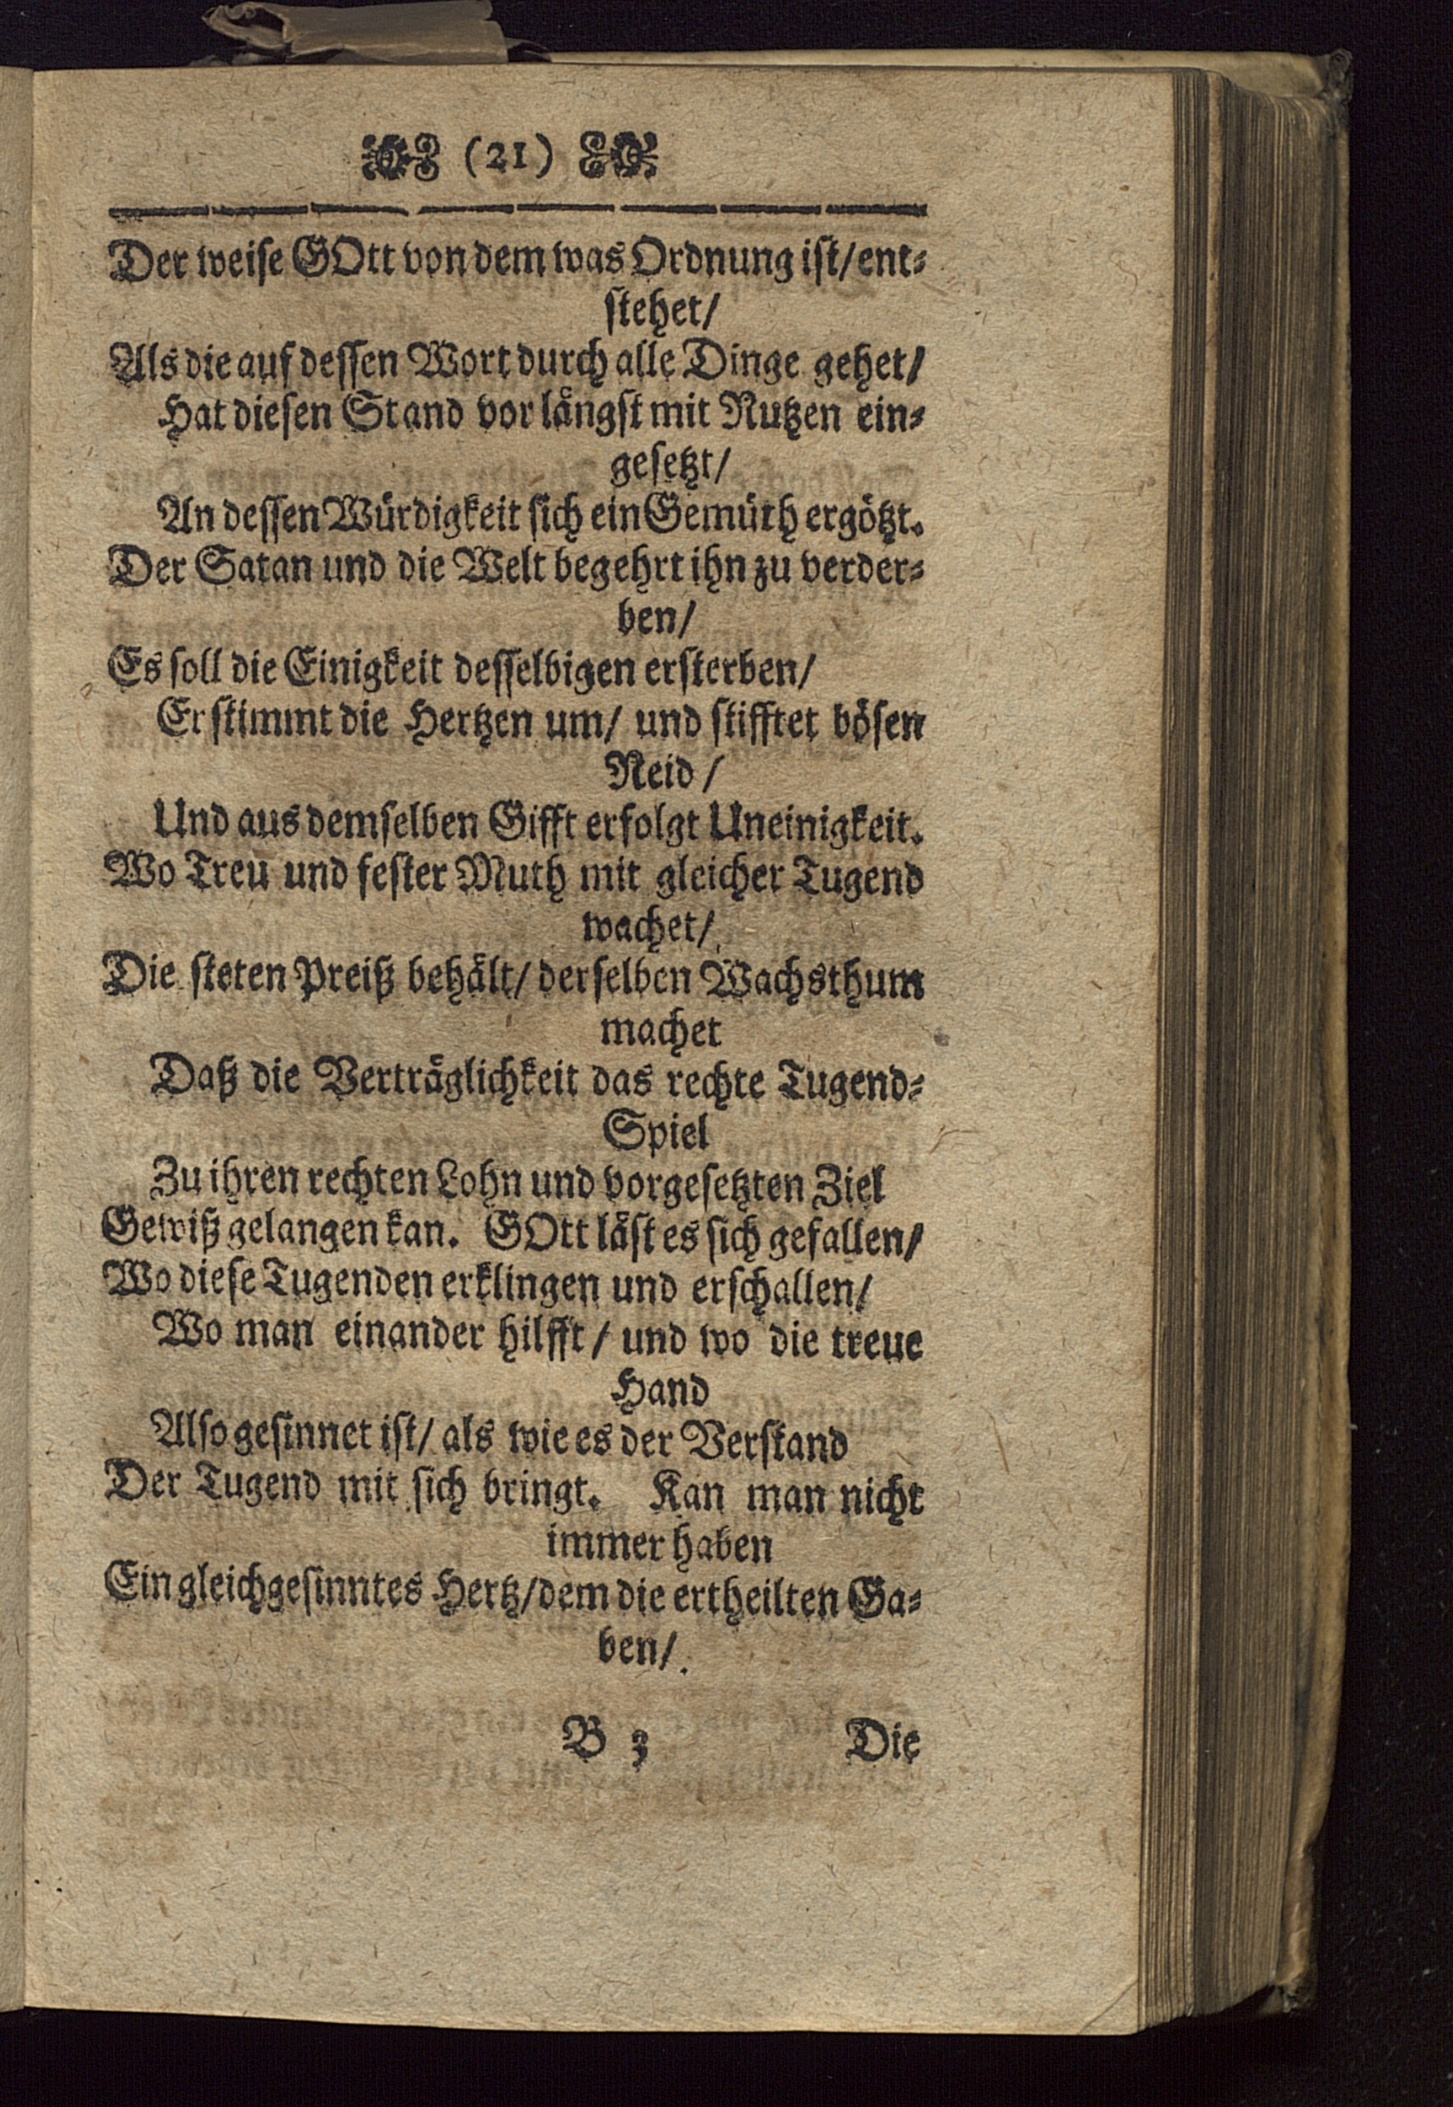 (21)
Der weise GOtt von dem was Ordnung ist/ ent-
stehet/
Als die auf dessen Wort durch alle Dinge gehet/
Hat diesen Stand vor längst mit Nutzen ein-
gesetzt/
An dessen Würdigkeit sich ein Gemüth ergötzt.
Der Satan und die Welt begehrt ihn zu verder-
ben/
Es soll die Einigkeit desselbigen ersterben/
Er stimmt die Hertzen um/ und stifftet bösen
Neid/
Und aus demselben Gifft erfolgt Uneinigkeit.
Wo Treu und fester Muth mit gleicher Tugend
wachet/
Die steten Preiß behält/ derselben Wachsthum
machet
Daß die Verträglichkeit das rechte Tugend-
Spiel
Zu ihren rechten Lohn und vorgesetzten Ziel
Gewiß gelangen kan. GOtt läst es sich gefallen/
Wo diese Tugenden erklingen und erschallen/
Wo man einander hilfft/ und wo die treue
Hand
Also gesinnet ist/ als wie es der Verstand
Der Tugend mit sich bringt. Kan man nicht
immer haben
Ein gleichgesinntes Hertz/ dem die ertheilten Ga-
ben/
B 3 Die